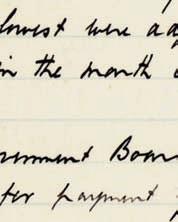 lowest were
in the month
ernment Boar
for payment